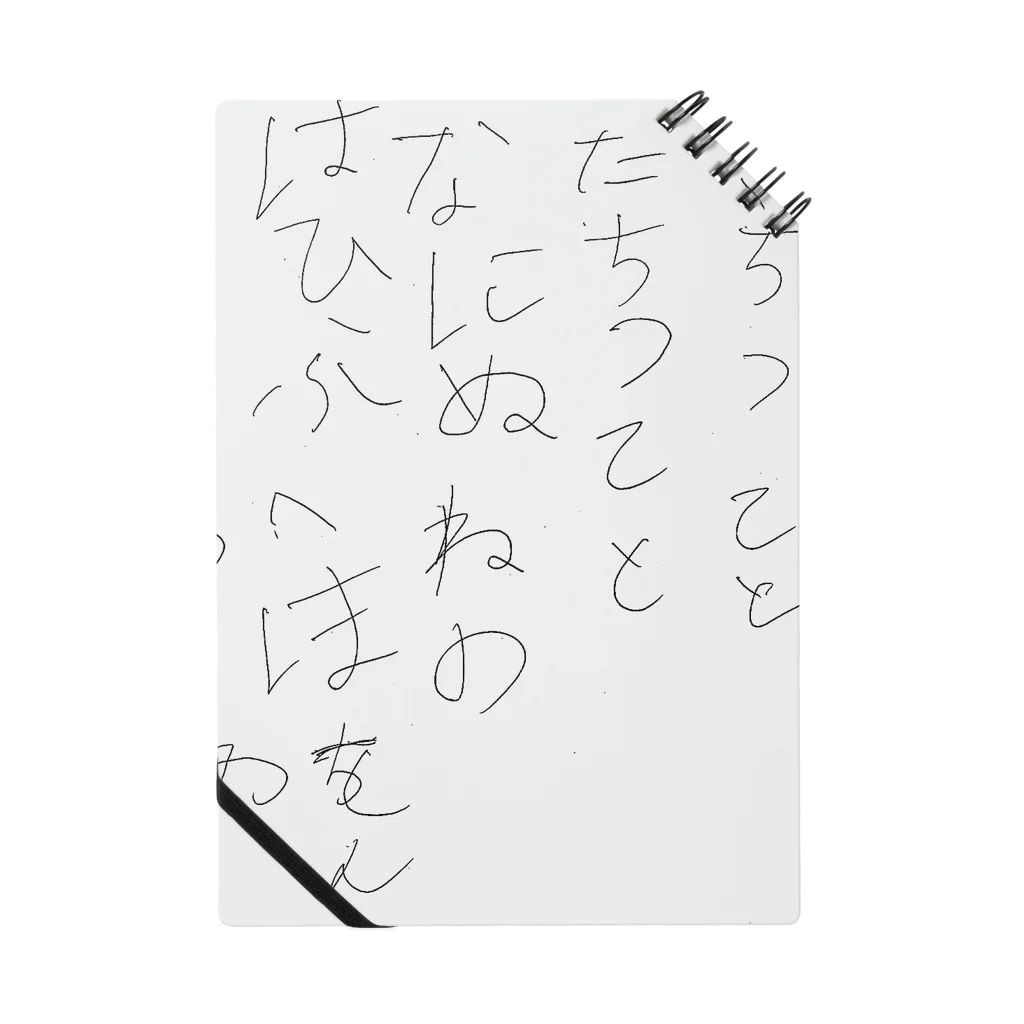 ちつてと
たちつてと
なにぬねの
はひふへほをん
わ